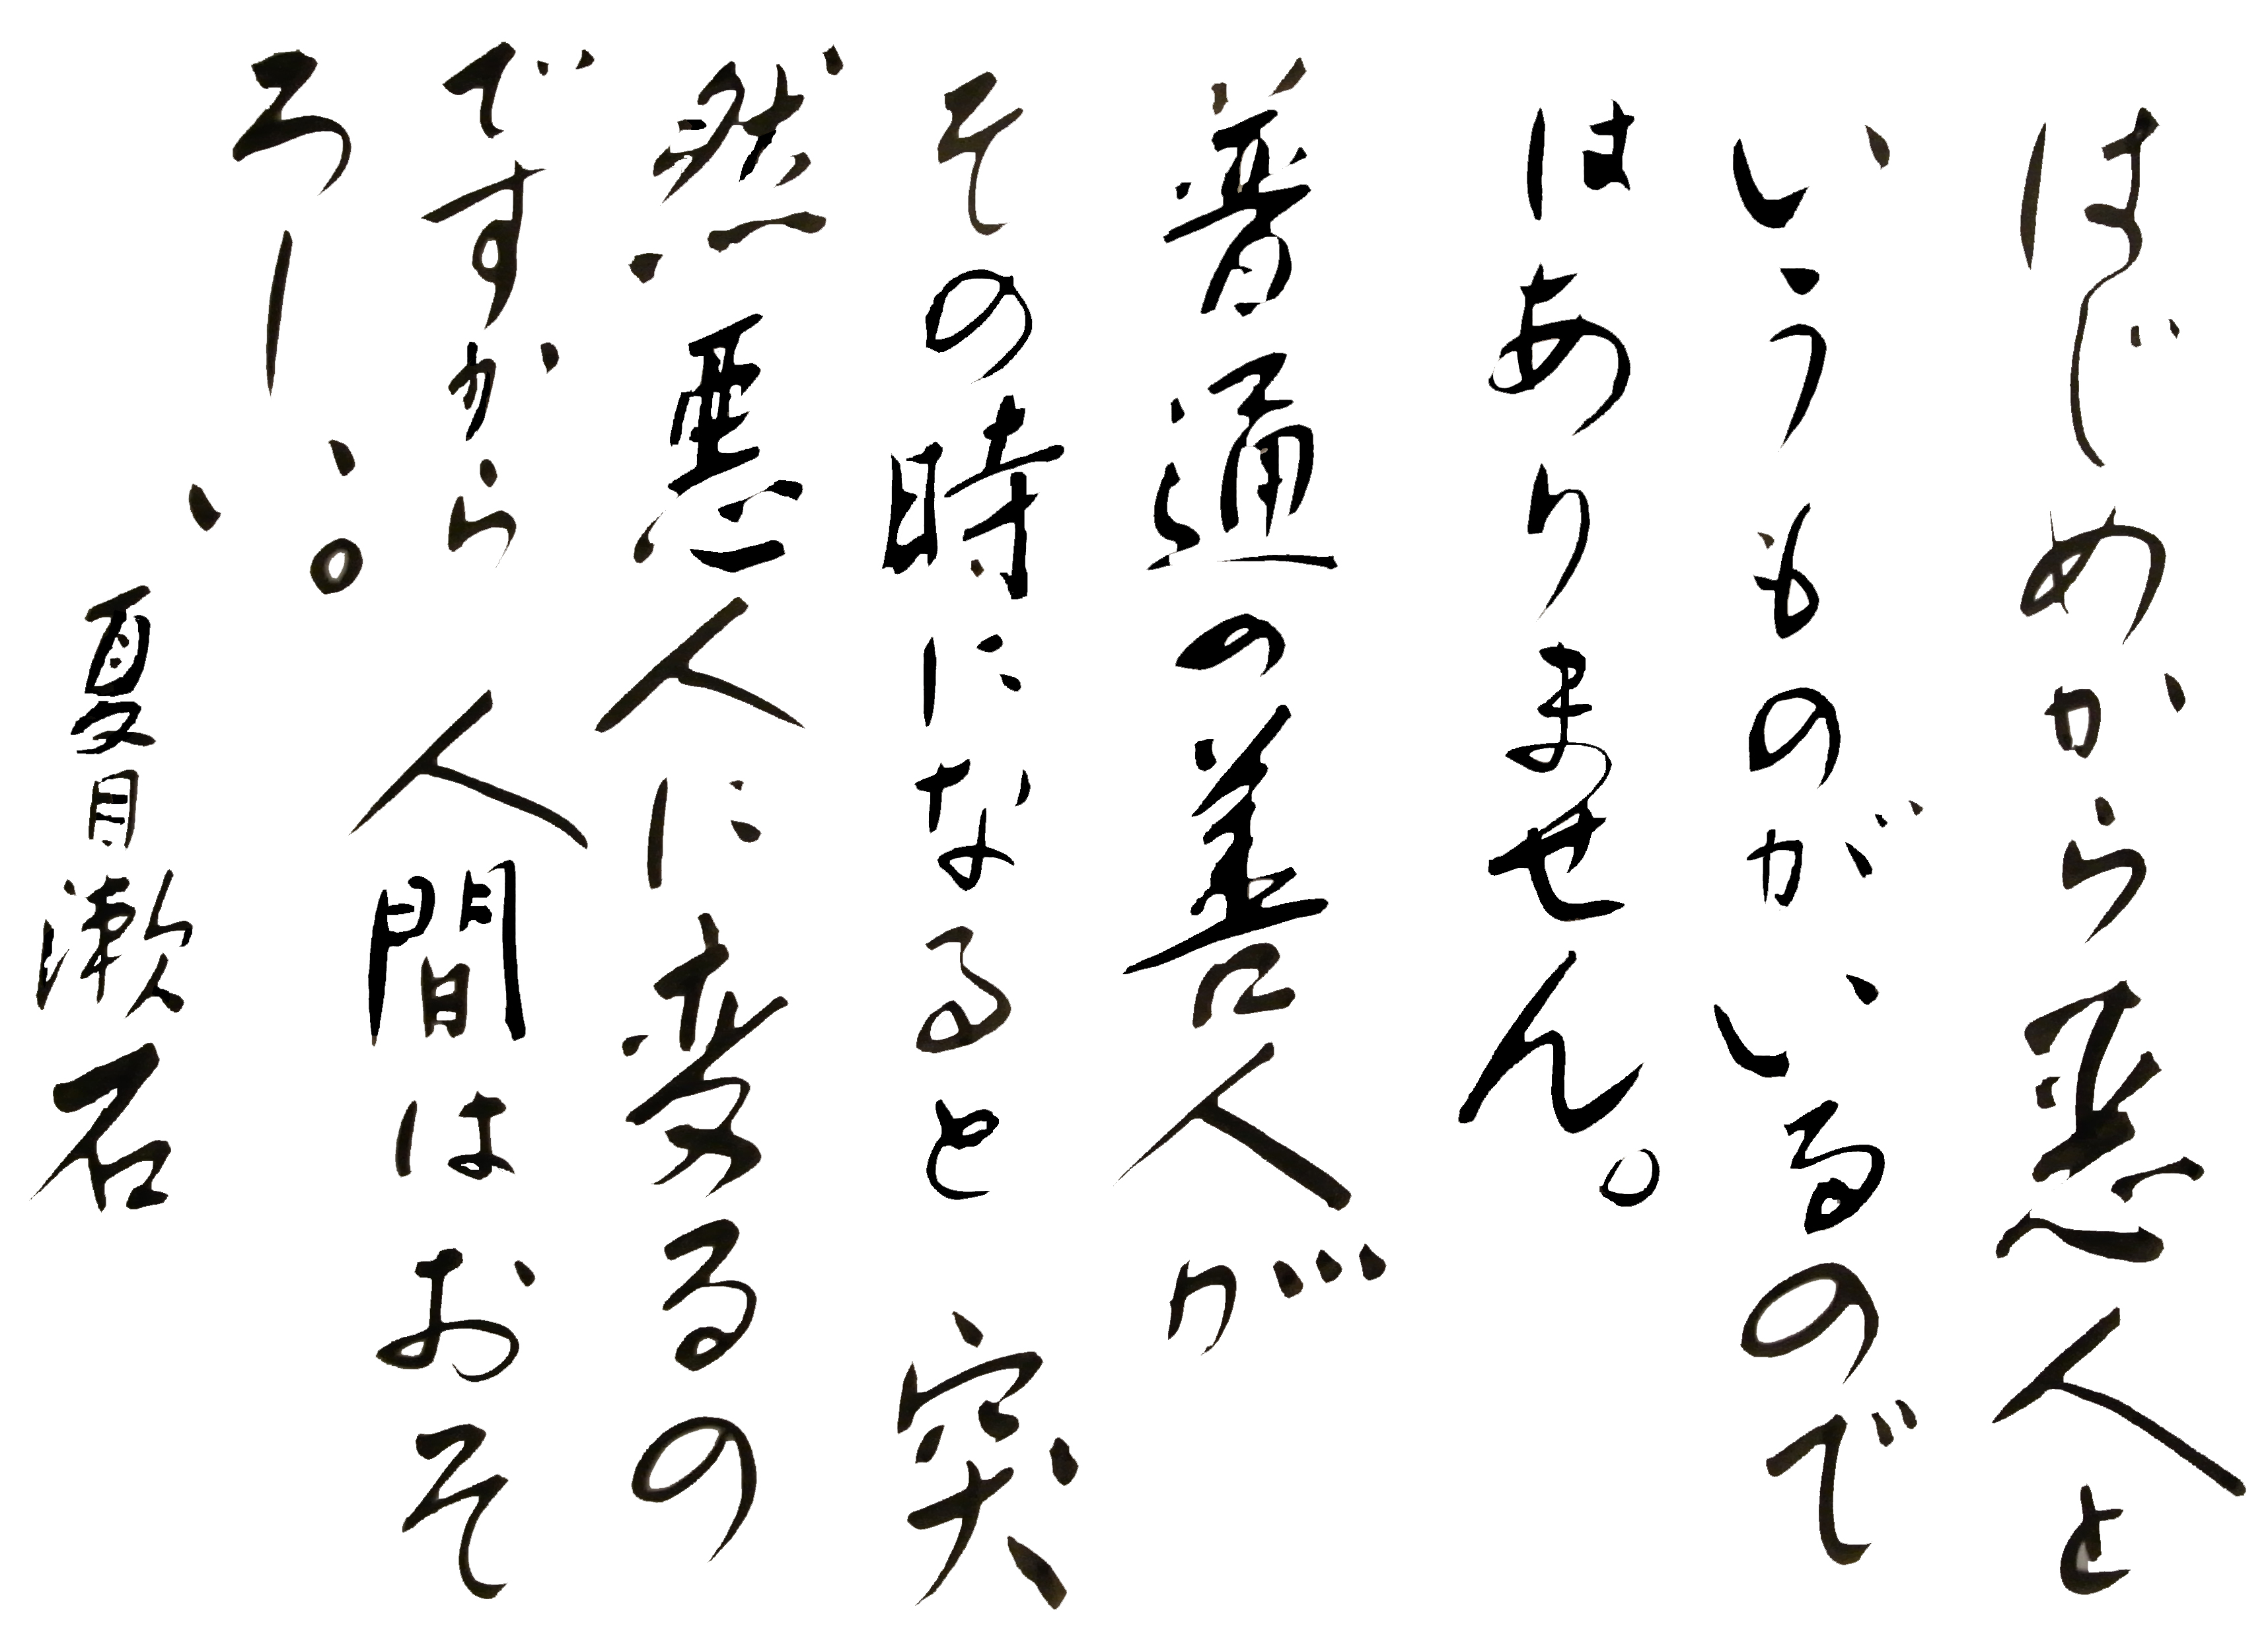 はじめから悪人と
いうものがいるので
はありません。
普通の善人が
その時になると突
然悪人に変るの
ですから人間はおそ
ろしい。
夏目漱石